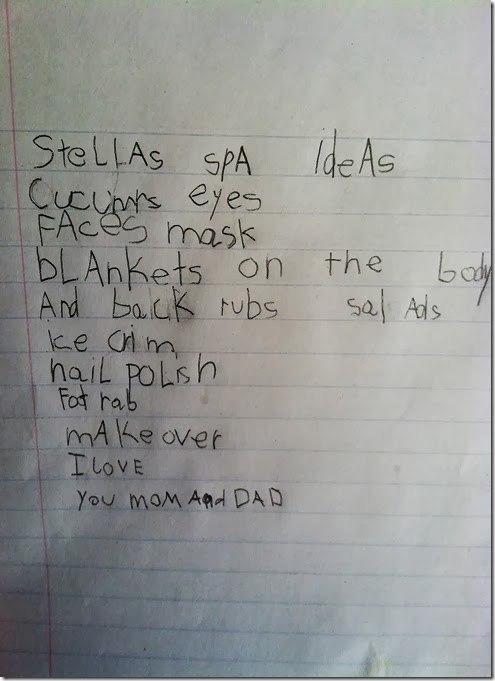 SteLLAs spA IdeAs
Cucumrs eyes
FAces mask
bLAnkets on the body
And back rubs salAds
ice crim
naiL poLish
Fot rab
mAke over
I LOVE
You mom And DAD